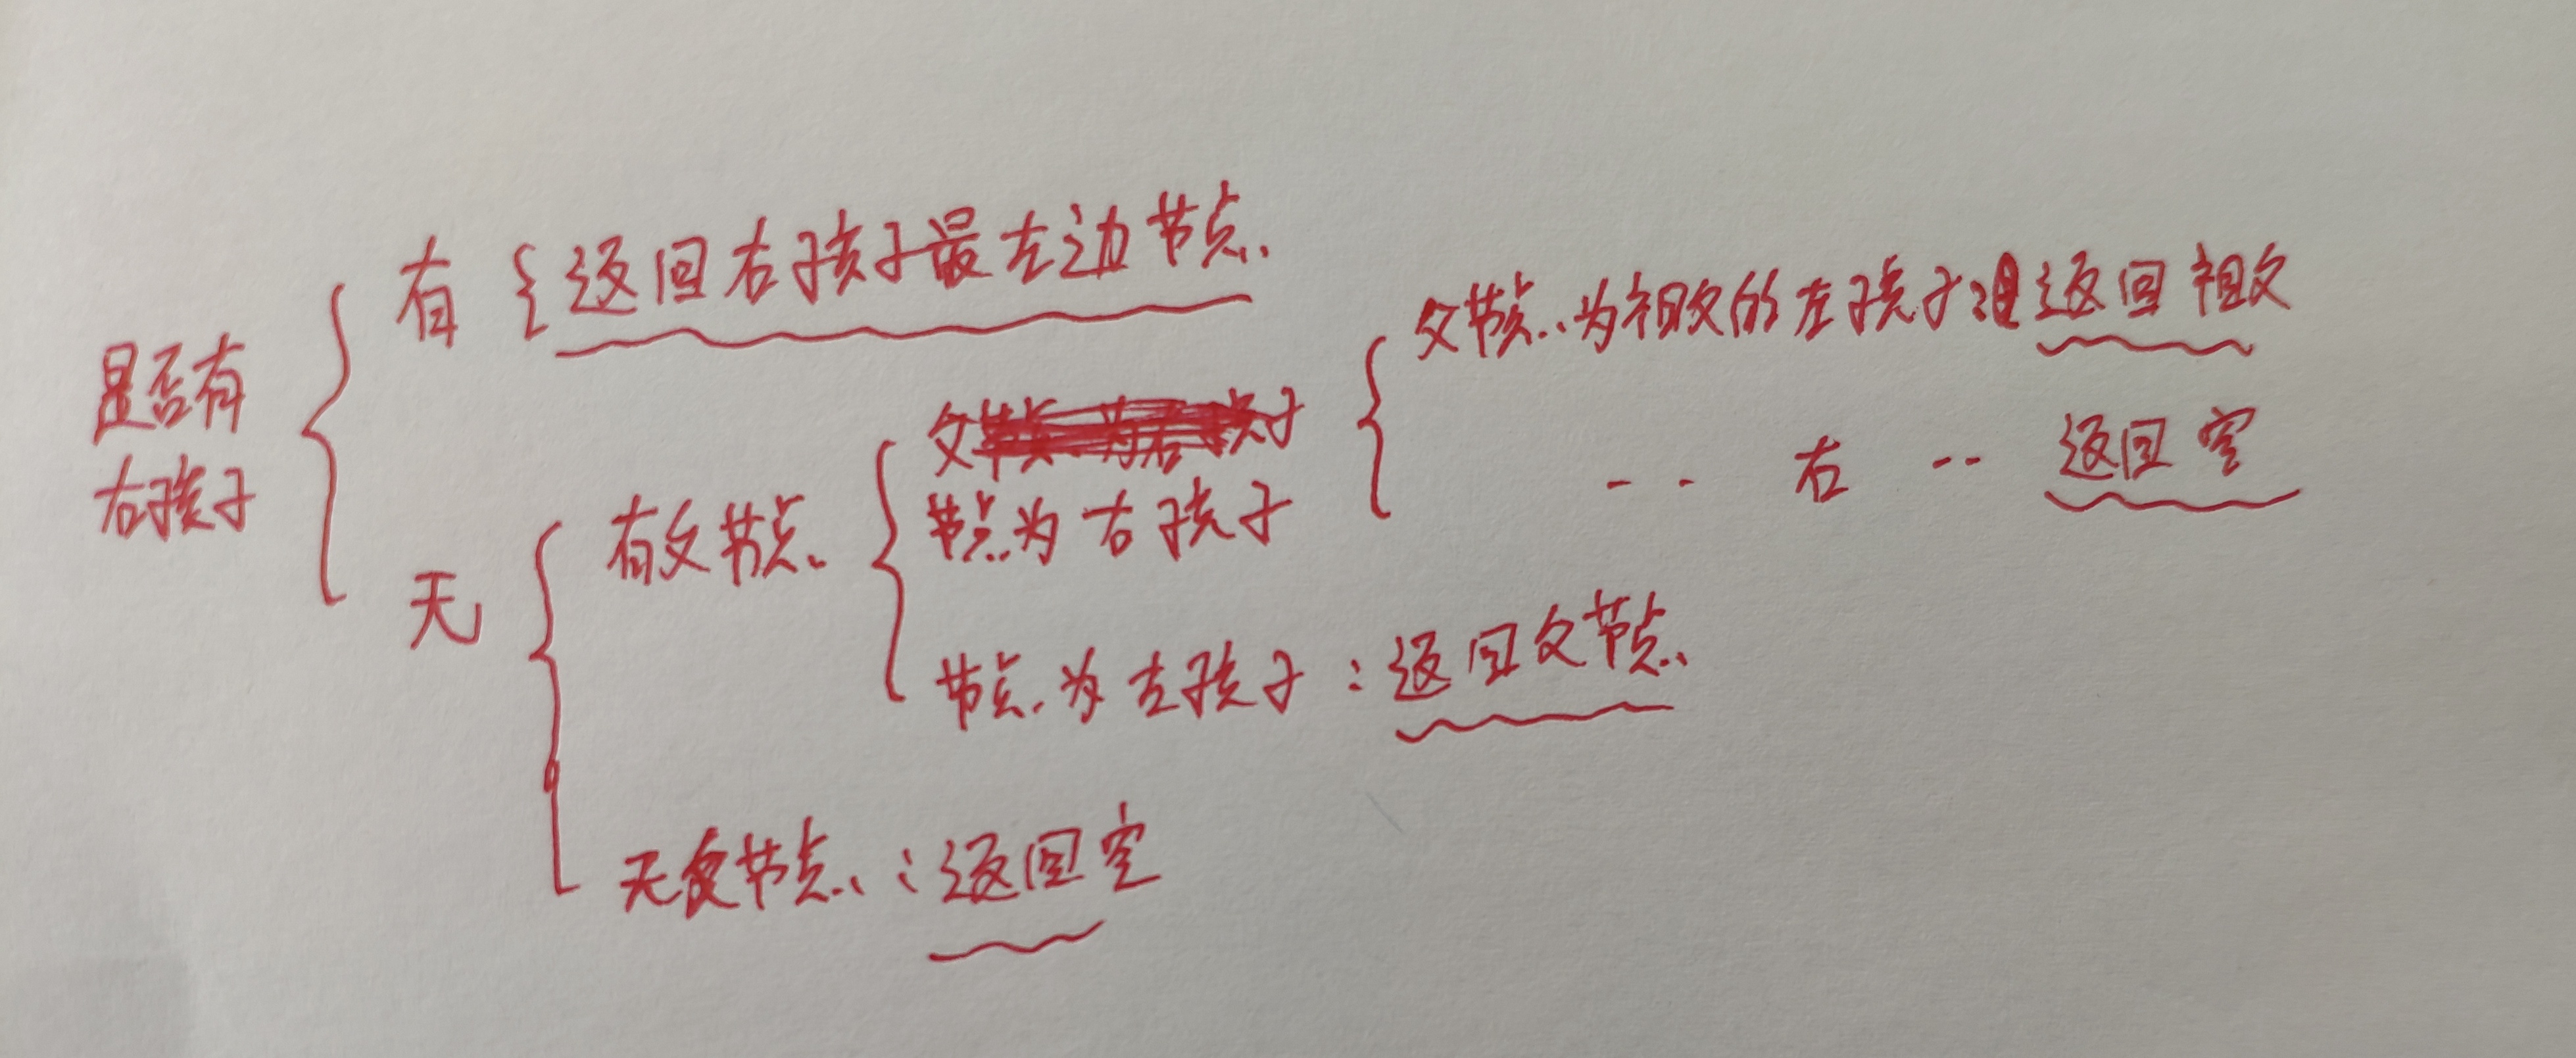 是否有
右孩子
有
返回右孩子最左边节点
无
有父节点
节点为右孩子
父节点为祖父的左孩子:返回祖父
‥ 右 ‥ 返回空
节点为左孩子:返回父节点
无父节点:返回空